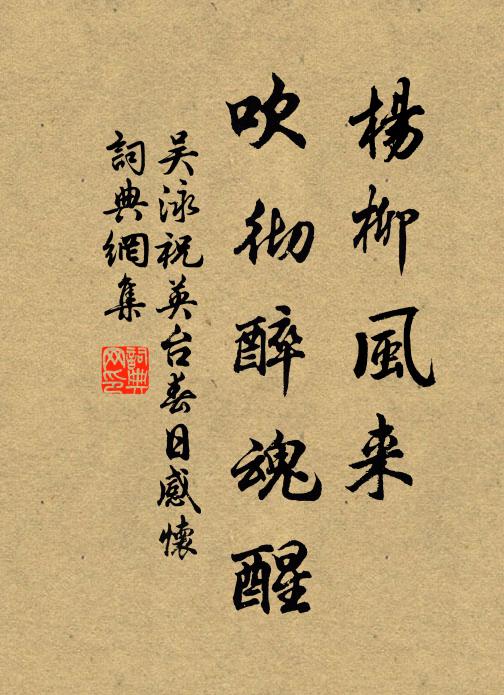 楊柳風来
吹彻醉魂醒
吴泳祝英台春日感懷
詞典網集
詞典網印